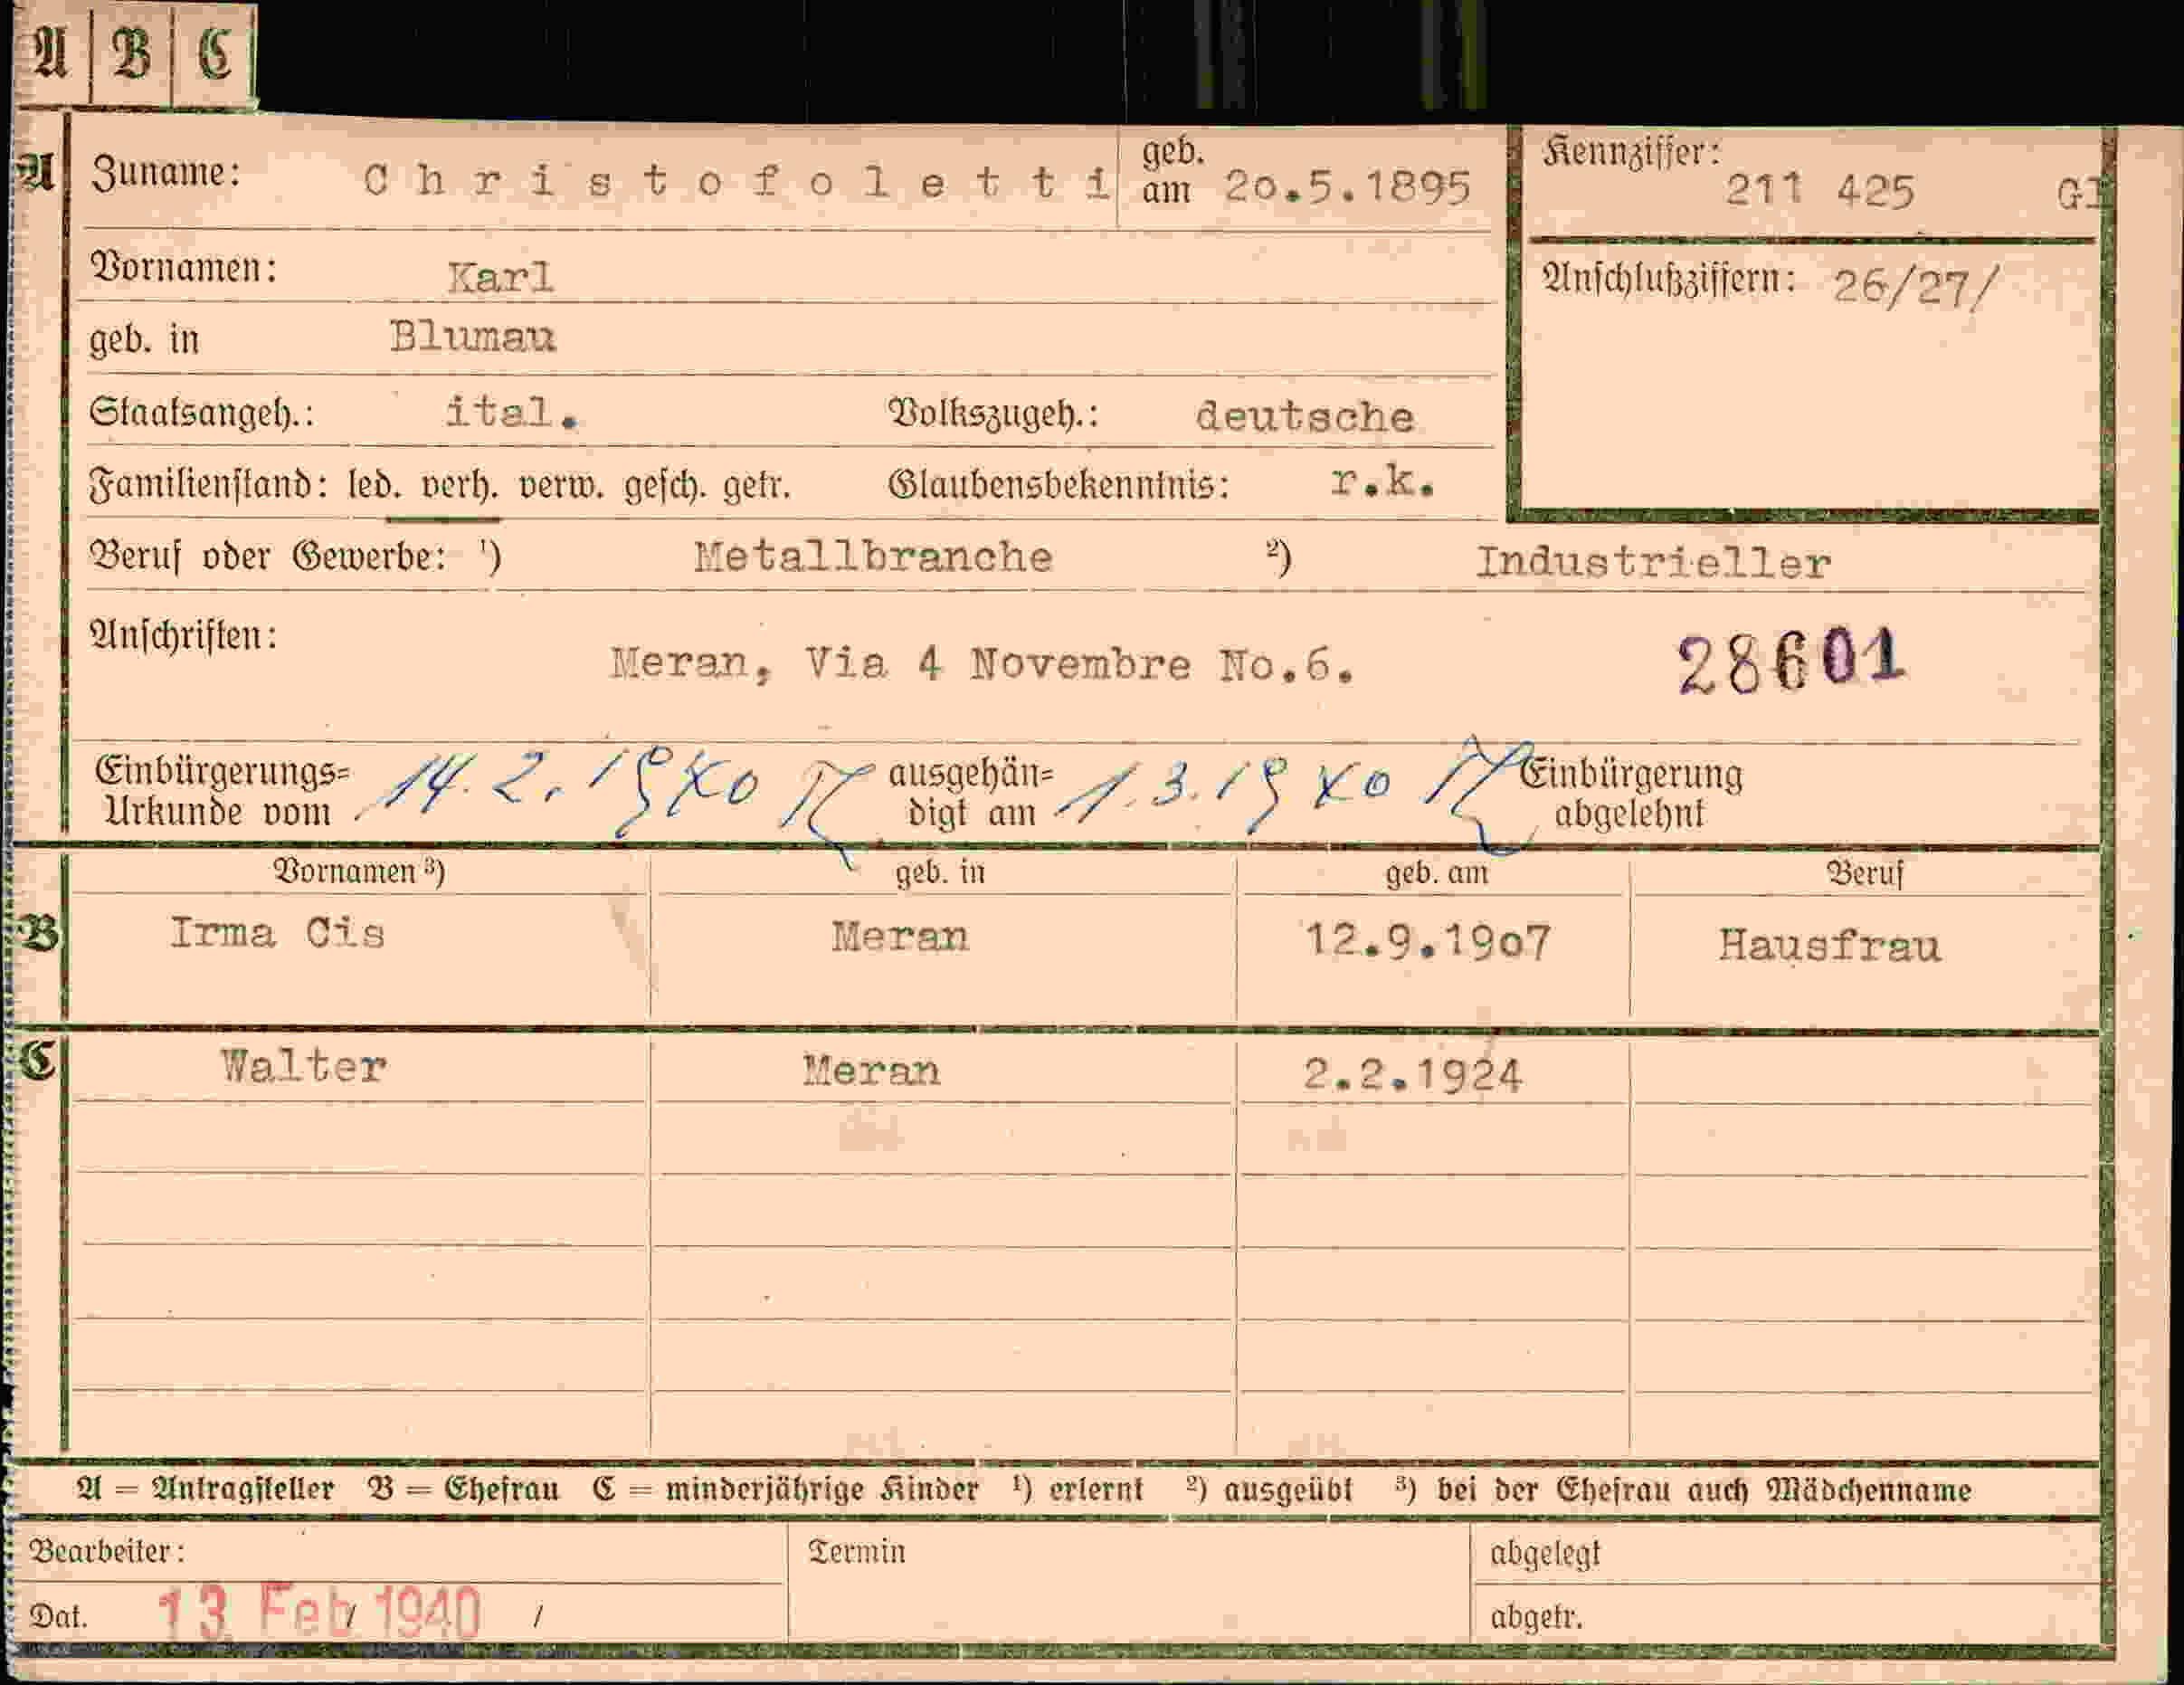 A B C
A Zuname: Christofoletti geb. am 20.5.1895 Kennziffer: 211 425 GI
Vornamen: Karl Anschlußziffern: 26/27/
geb. in Blumau
Staatsangeh.: ital. Volkszugeh.: deutsche
Familienstand: led. verh. verw. gesch. getr. Glaubensbekenntnis: r.k.
Beruf oder Gewerbe: 1) Metallbranche 2) Industrieller
Anschriften: Meran, Via 4 Novembre No.6. 28601
Einbürgerungs= Urkunde vom 14.2.1940 ausgehän= digt am 1.3.1940 Einbürgerung abgelehnt
Vornamen 3) geb. in geb. am Beruf
B Irma Cis Meran 12.9.1907 Hausfrau
C Walter Meran 2.2.1924
A = Antragsteller B = Ehefrau C = minderjährige Kinder 1) erlernt 2) ausgeübt 3) bei der Ehefrau auch Mädchenname
Bearbeiter: Termin abgelegt
Dat. 13 Feb 1940 / / abgetr.